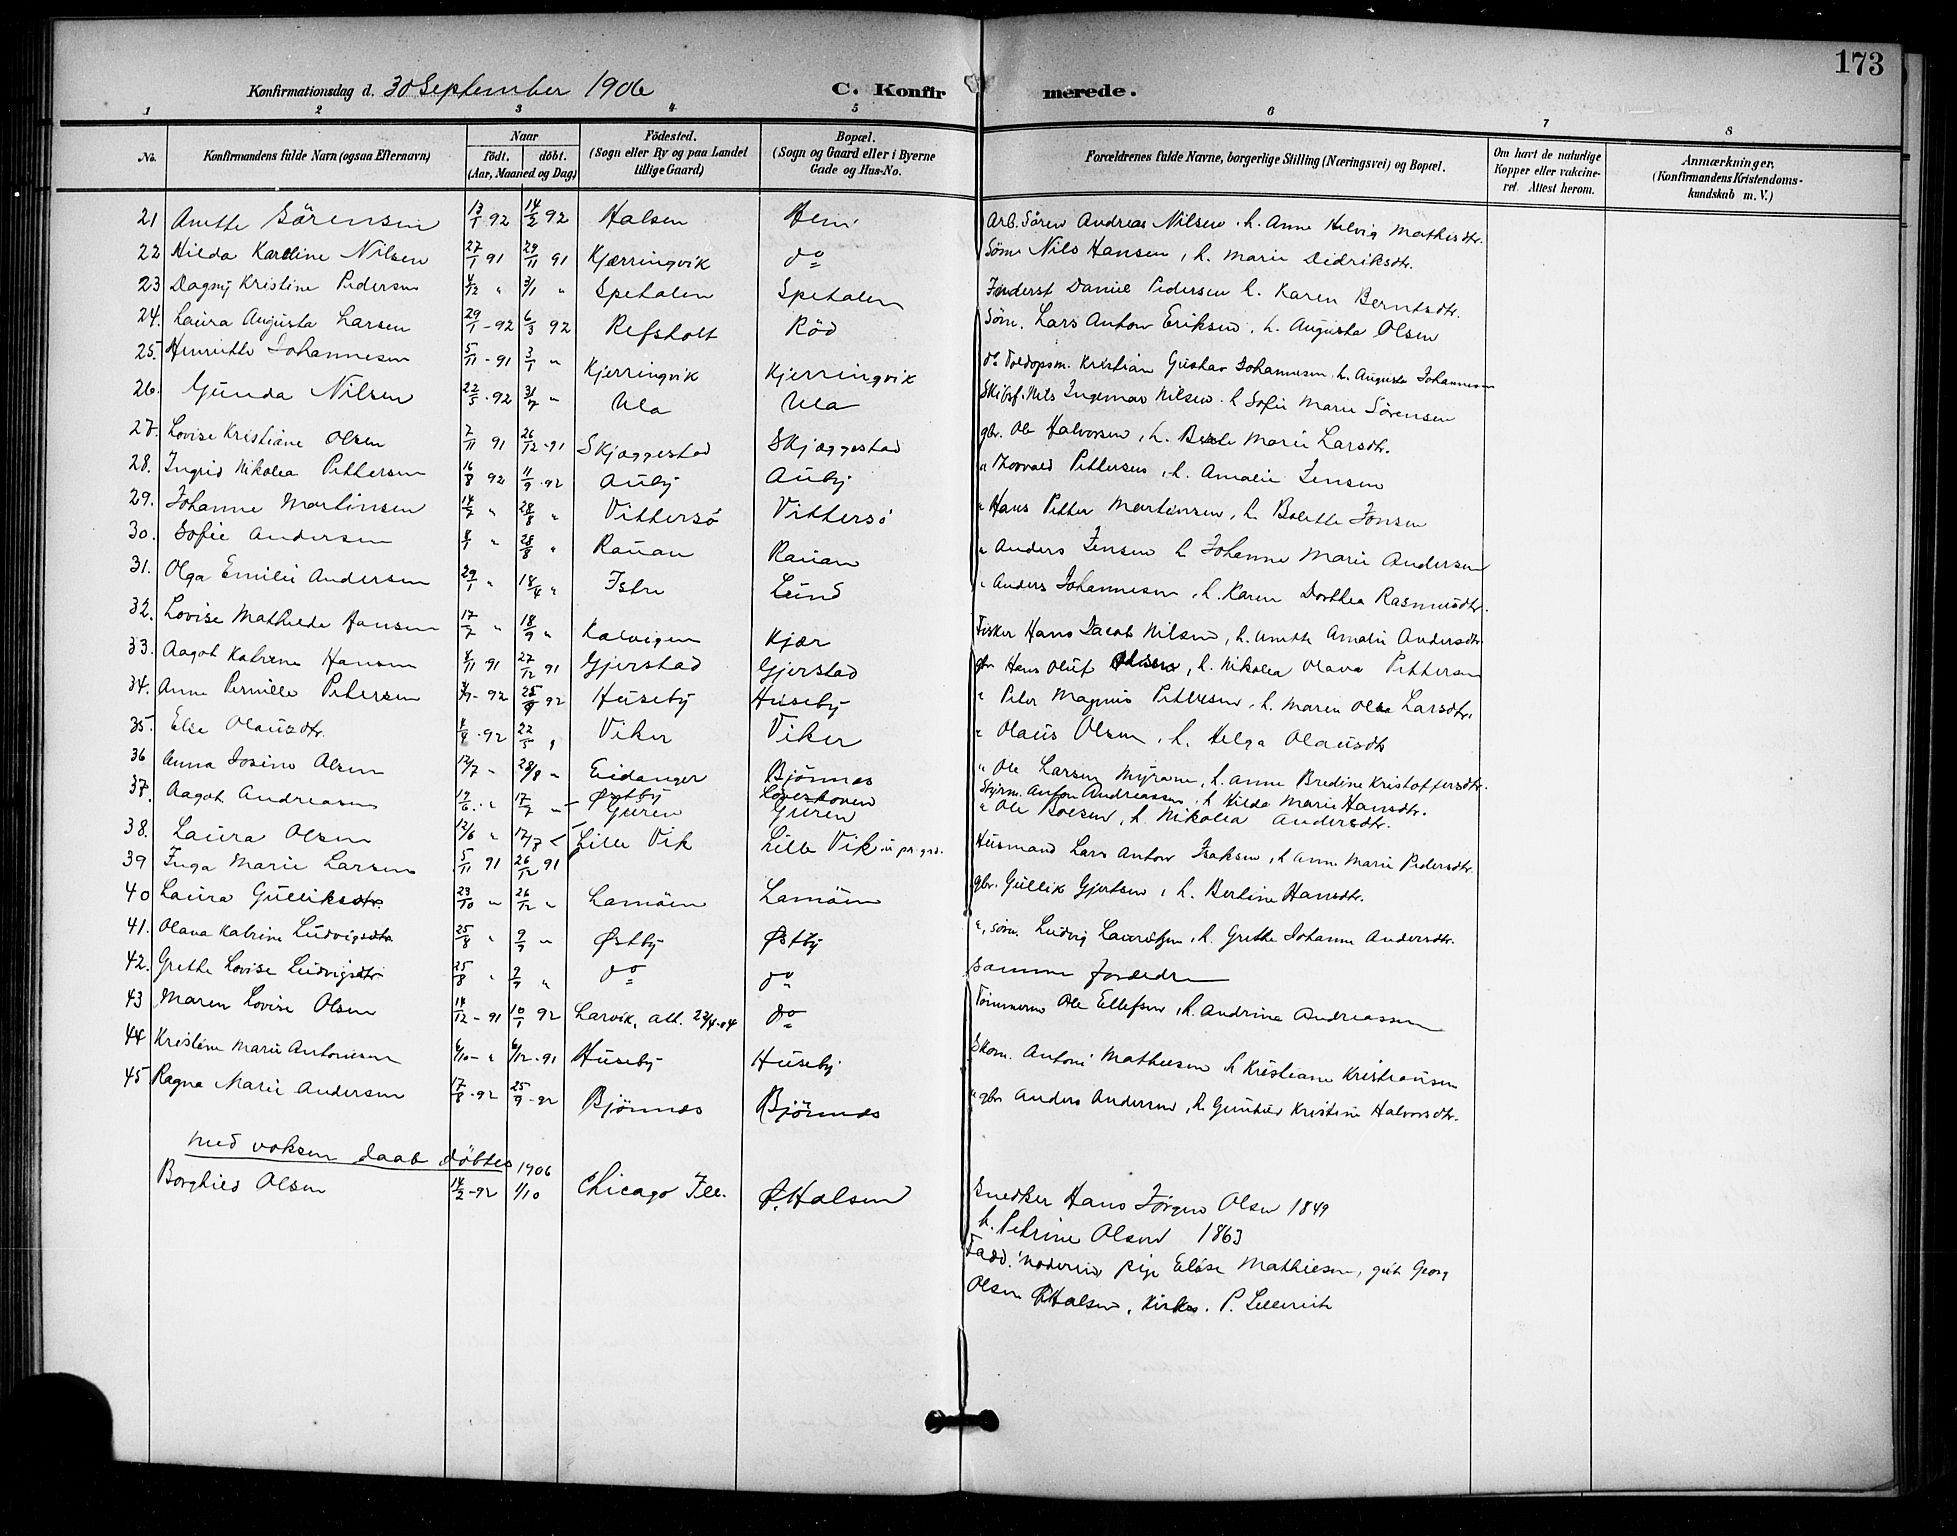 173
Konfirmationsdag d. 30 September 1906 C. Konfirmerede.
1 2 3 4 5 6 7 8
No. Konfirmandens fulde Navn (ogsaa Efternavn) Naar födt. döbt. (Aar, Maaned og Dag) Födested. (Sogn eller By og paa Landet tillige Gaard) Bopæl. (Sogn og Gaard eller i Byerne Gade og Hus-No. Forældrenes fulde Navne, borgerlige Stilling (Næringsvei) og Bopæl. Om havt de naturlige Kopper eller vaccineret. Attest herom. Anmærkninger. (Konfirmandens Kristendomskundskab m. V.)
21 Anette Sörensen 13/1 92 14/2 92 Halsen Hem Arb. Sören Andreas Nilsen, h. Anne Helvig Mathisdtr.
22 Hilda Karoline Nilsen 27/1 91 29/11 91 Kjærringvik do Söm. Nils Hansen, h. Marie Didriksdtr.
23 Dagny Kristine Pedersen 4/12 " 3/1 " Spetalen Spetalen Inderst Daniel Pedersen h. Karen Berntsdtr.
24. Laura Augusta Larsen 29/1 - 92 6/3 92 Refsholt Röd Söm. Lars Anton Eriksen, h. Augusta Olsen
25. Henriette Johannesen 5/11 - 91 3/1 " Kjerringvik Kjerringvik Toldopsm. Kristian Gustav Johannesen, h. Augusta Johannesen
26. Gunda Nilsen 22/5 - 92 31/7 " Ula Ula Skibsf. Nils Ingemar Nilsen. h Sofie Marie Sörensen
27. Lovise Kristiane Olsen 7/11 91 26/12 - 91 Skjæggestad Skjæggestad gbr. Ole Halvorsen, h. Berte Marie Larsdtr.
28. Ingrid Nikolea Pettersen 16/8 92 11/9 - 92 Auby Auby " Thorvald Pettersen, h. Amalie Jensen
29. Johanne Martinsen 14/7 " 28/8 " Vittersö Vittersö " Hans Petter Martinsen, h. Bolette Jonsen
30. Sofie Andersen 8/1 " 28/8 " Rauan Rauan " Anders Jensen h Johanne Marie Andersen
31. Olga Emilie Andersen 29/1 " 18/4 " Istre Lund " Anders Johannesen, h. Karen Dorthea Rasmusdtr.
32. Lovise Mathilde Hansen 17/7 " 18/9 " Kalvigen Kjær Fisker Hans Jacob Nilsen, h. Anette Amalie Andersdtr
33. Aagot Katrine Hansen 8/11 91 27/12 91 Gjerstad Gjerstad gbr Hans Oluf Olsen, h. Nikolea Olava Pettersen
34. Anne Pernille Petersen 92 25/9 92 Huseby Huseby " Peter Magnus Pettersen, h. Maren Olea Larsdtr.
35. Else Olausdtr. 4/4 - 92 22/5 " Viker Viker " Olaus Olsen, h. Helga Olausdtr
36 Anna Josine Olsen 12/7 " 28/8 " Eidanger Bjönnes " Ole Larsen Myrane, h. Anne Bredine Kristoffersdtr.
37. Aagot Andreasen 19/6 " 17/7 " Östby Styrm. Anton Andreassen, h Hilda Marie Hansdtr.
38. Laura Olsen 12/6 " 17/7 Guren Guren " Ole Boesen, h. Nikolea Andersdtr.
39 Inga Marie Larsen 5/11 91 26/12 91 Lille Vik Lille Vik u. pr. grd. Husmand Lars Anton Isaksen, h Anne Marie Pedersdtr.
40 Laura Gulliksdtr. 23/10 " 26/12 " Lamöen Lamöen gbr. Gullik Gjertsen, h. Berline Hansdtr.
41. Olava Katrine Ludvigsdtr 25/8 " 9/9 " Östby Östby ", söm. Ludvig Lauritsen, h. Grethe Johanne Andersdtr.
42. Grethe Lovise Ludvigsdtr 25/8 " 9/9 " do do samme forældre
43 Maren Lovise Olsen 14/12 - 91 10/1 92 Larvik, att. 23/4-04 do Tömmerm Ole Ellefsen, h. Andrine Andreassen
44 Kristine Marie Antonisen 6/10 - " 6/12 - 91 Huseby Huseby Skom. Antoni Mathisen h Kristiane Kristiansen
45 Ragna Marie Andersen 17/8 - 92 25/9 - 92 Bjönnes Bjönnes " gbr Anders Andersen, h. Gunhild Kristine Halvorsdtr.
med voksen daab döbtes 1906
Borghild Olsen 14/2 - 92 1/10 Chicago Ill. Ö. Halsen Snedker Hans Jörgen Olsen 1849
h. Petrine Olsen 1863
Fadd. Moderen, pige Elise Mathisen, gut Georg
Olsen Ö Halsen, Kirkes. P.